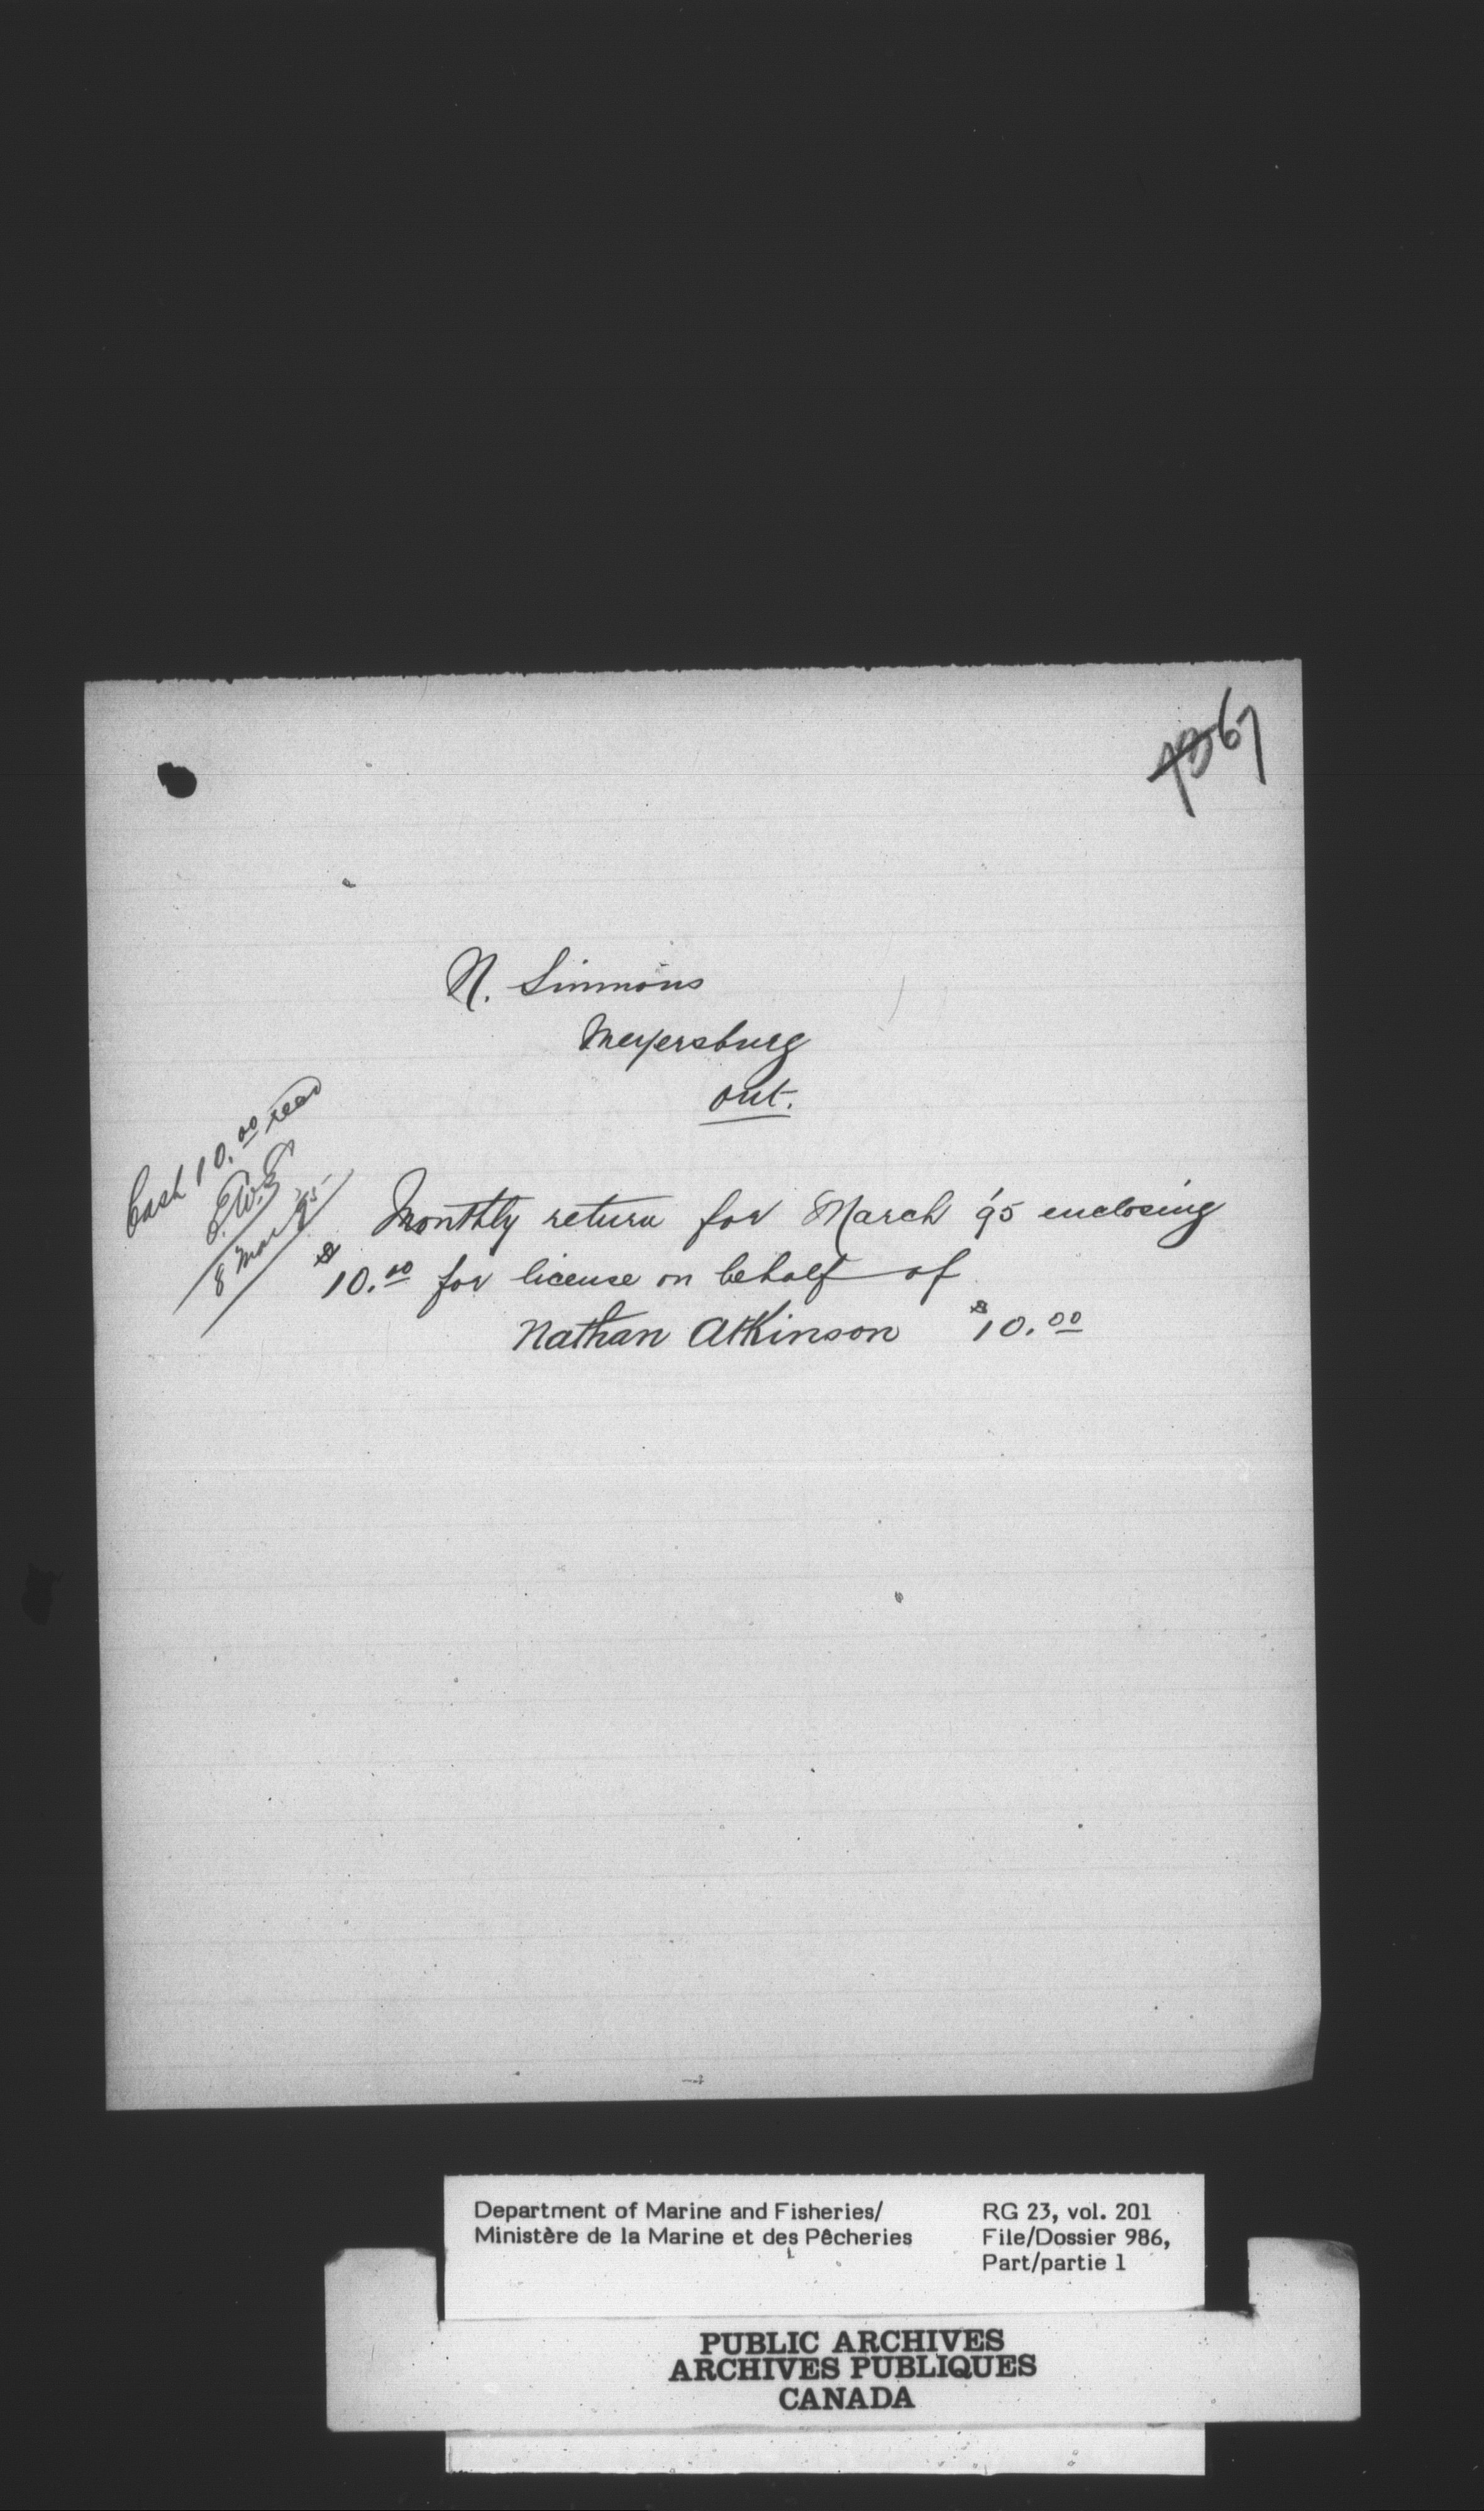 67
N. Simmons
Meyersburg
Ont.
Cash 10.00 recd
8 Mar 95
Monthly return for March '95 enclosing
$10.00 for license on behalf of
Nathan Atkinson $10.00
Department of Marine and Fisheries/
Ministère de la Marine et des Pêcheries
RG 23, vol. 201
File/Dossier 986,
Part/partie 1
PUBLIC ARCHIVES
ARCHIVES PUBLIQUES
CANADA